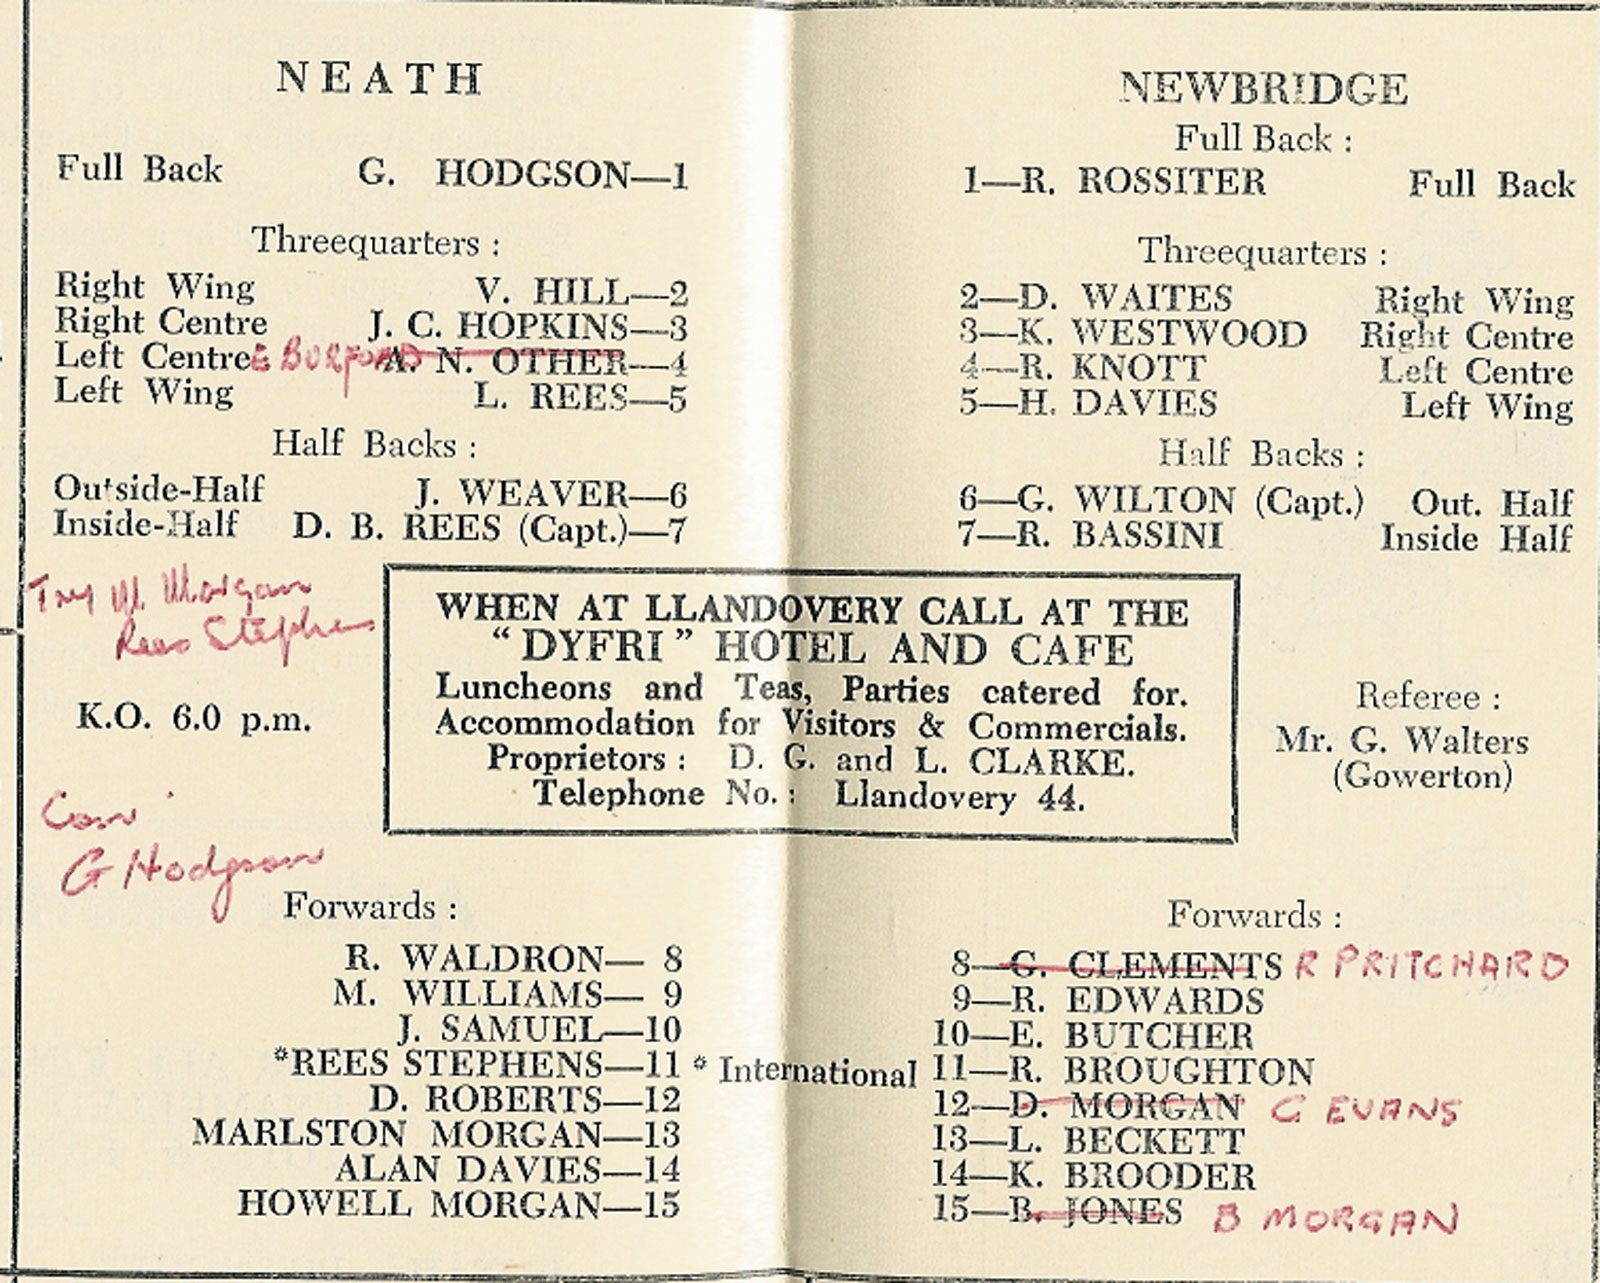 NEATH
Full Back G. HODGSON—1
Threequarters :
Right Wing V. HILL—2
Right Centre J. C. HOPKINS—3
Left Centre E BURFORD A. N. OTHER—4
Left Wing L. REES—5
Half Backs :
Outside-Half J. WEAVER—6
Inside-Half D. B. REES (Capt.)—7
NEWBRIDGE
Full Back :
1—R. ROSSITER Full Back
Threequarters :
2—D. WAITES Right Wing
3—K. WESTWOOD Right Centre
4—R. KNOTT Left Centre
5—H. DAVIES Left Wing
Half Backs :
6—G. WILTON (Capt.) Out. Half
7—R. BASSINI Inside Half
Try M. Morgan
Rees Stephens
K.O. 6.0 p.m.
Con
G Hodgson
WHEN AT LLANDOVERY CALL AT THE
“DYFRI” HOTEL AND CAFE
Luncheons and Teas, Parties catered for.
Accommodation for Visitors & Commercials.
Proprietors : D. G. and L. CLARKE.
Telephone No. : Llandovery 44.
Referee :
Mr. G. Walters
(Gowerton)
Forwards :
R. WALDRON— 8
M. WILLIAMS— 9
J. SAMUEL—10
*REES STEPHENS—11
D. ROBERTS—12
MARLSTON MORGAN—13
ALAN DAVIES—14
HOWELL MORGAN—15
* International
Forwards :
8—G. CLEMENTS R PRITCHARD
9—R. EDWARDS
10—E. BUTCHER
11—R. BROUGHTON
12—D. MORGAN G EVANS
13—L. BECKETT
14—K. BROODER
15—B. JONES B MORGAN